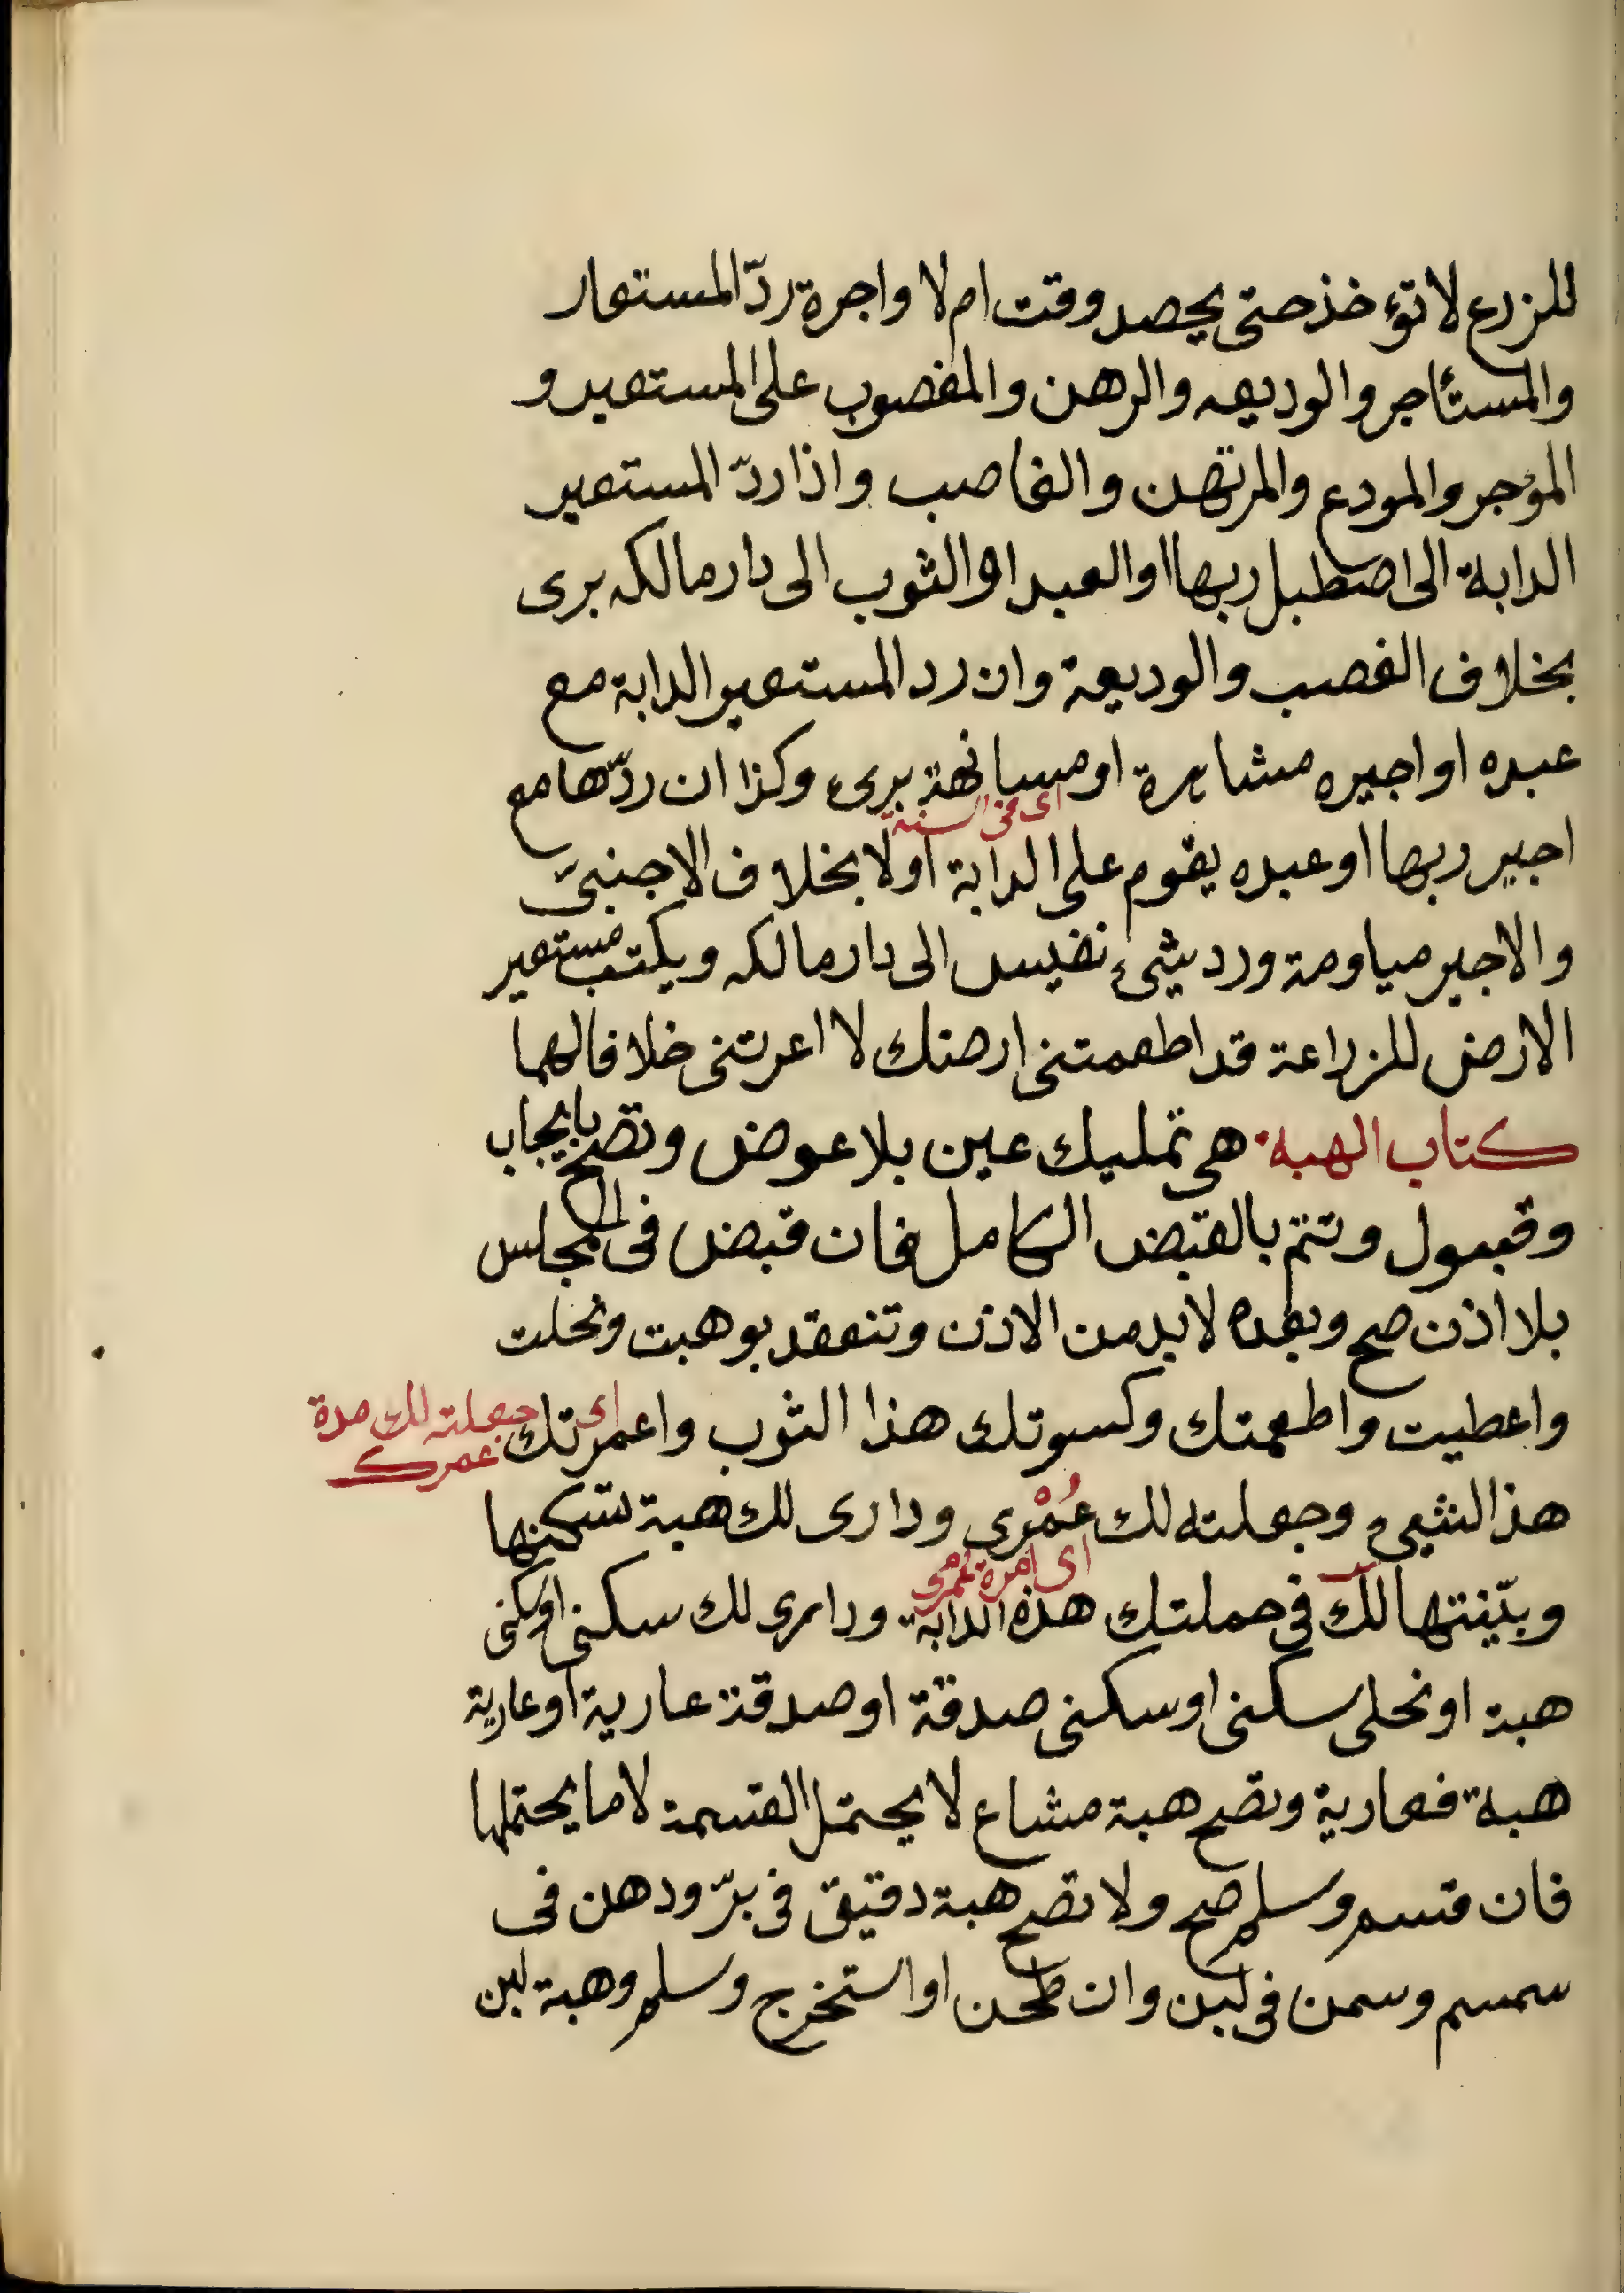 للزرع لا تؤخذ حتى يحصد وقت ام لا واجرة ردّ المستعار
والمستأجر والوديعه والرهن والمغصوب على المستعير و
المؤجر والمودع والمرتهن والغاصب واذا ردّ المستعير
الدابة الى اصطبل ربها او العبد او الثوب الى دار مالكه برى
بخلاف الغصب والوديعة وان رد المستعير الدابة مع
عبده او اجيره مشاهرة او مسانهة برىء وكذا ان ردّها مع
اى فى السنة
اجير ربها او عبده يقوم على الدابة اولا بخلاف الاجنبىّ
والاجير مياومة ورد شىء نفيس الى دار مالكه ويكتب مستعير
الارض للزراعة قد اطعمتنى ارضك لا اعرتنى خلافا لهما
كتاب الهبة هي تمليك عين بلا عوض وتصح بايجاب
وقبول وتتم بالقبض الكامل فان قبض فى المجلس
بلا اذن صح وبعده لا بد من الاذن وتنعقد بوهبت ونحلت
واعطيت واطعمتك وكسوتك هذا الثوب واعمرتك
اى جعلته لك مدة
عمرك
هذا الشىء وجعلته لك عُمْرى ودارى لك هبة تسكنها
وبيّنتها لك فى حملتك هذه الدابة ودارى لك سكنى او سكنى
هبة او نحلى سكنى او سكنى صدقة او صدقة عارية او عارية
هبة فعارية وتصح هبة مشاع لا يحتمل القسمة لا ما يحتملها
فان قسم وسلم صح ولا تصح هبة دقيق فى برّ ودهن فى
سمسم وسمن فى لبن وان طحن او استخرج وسلم وهبة لبن